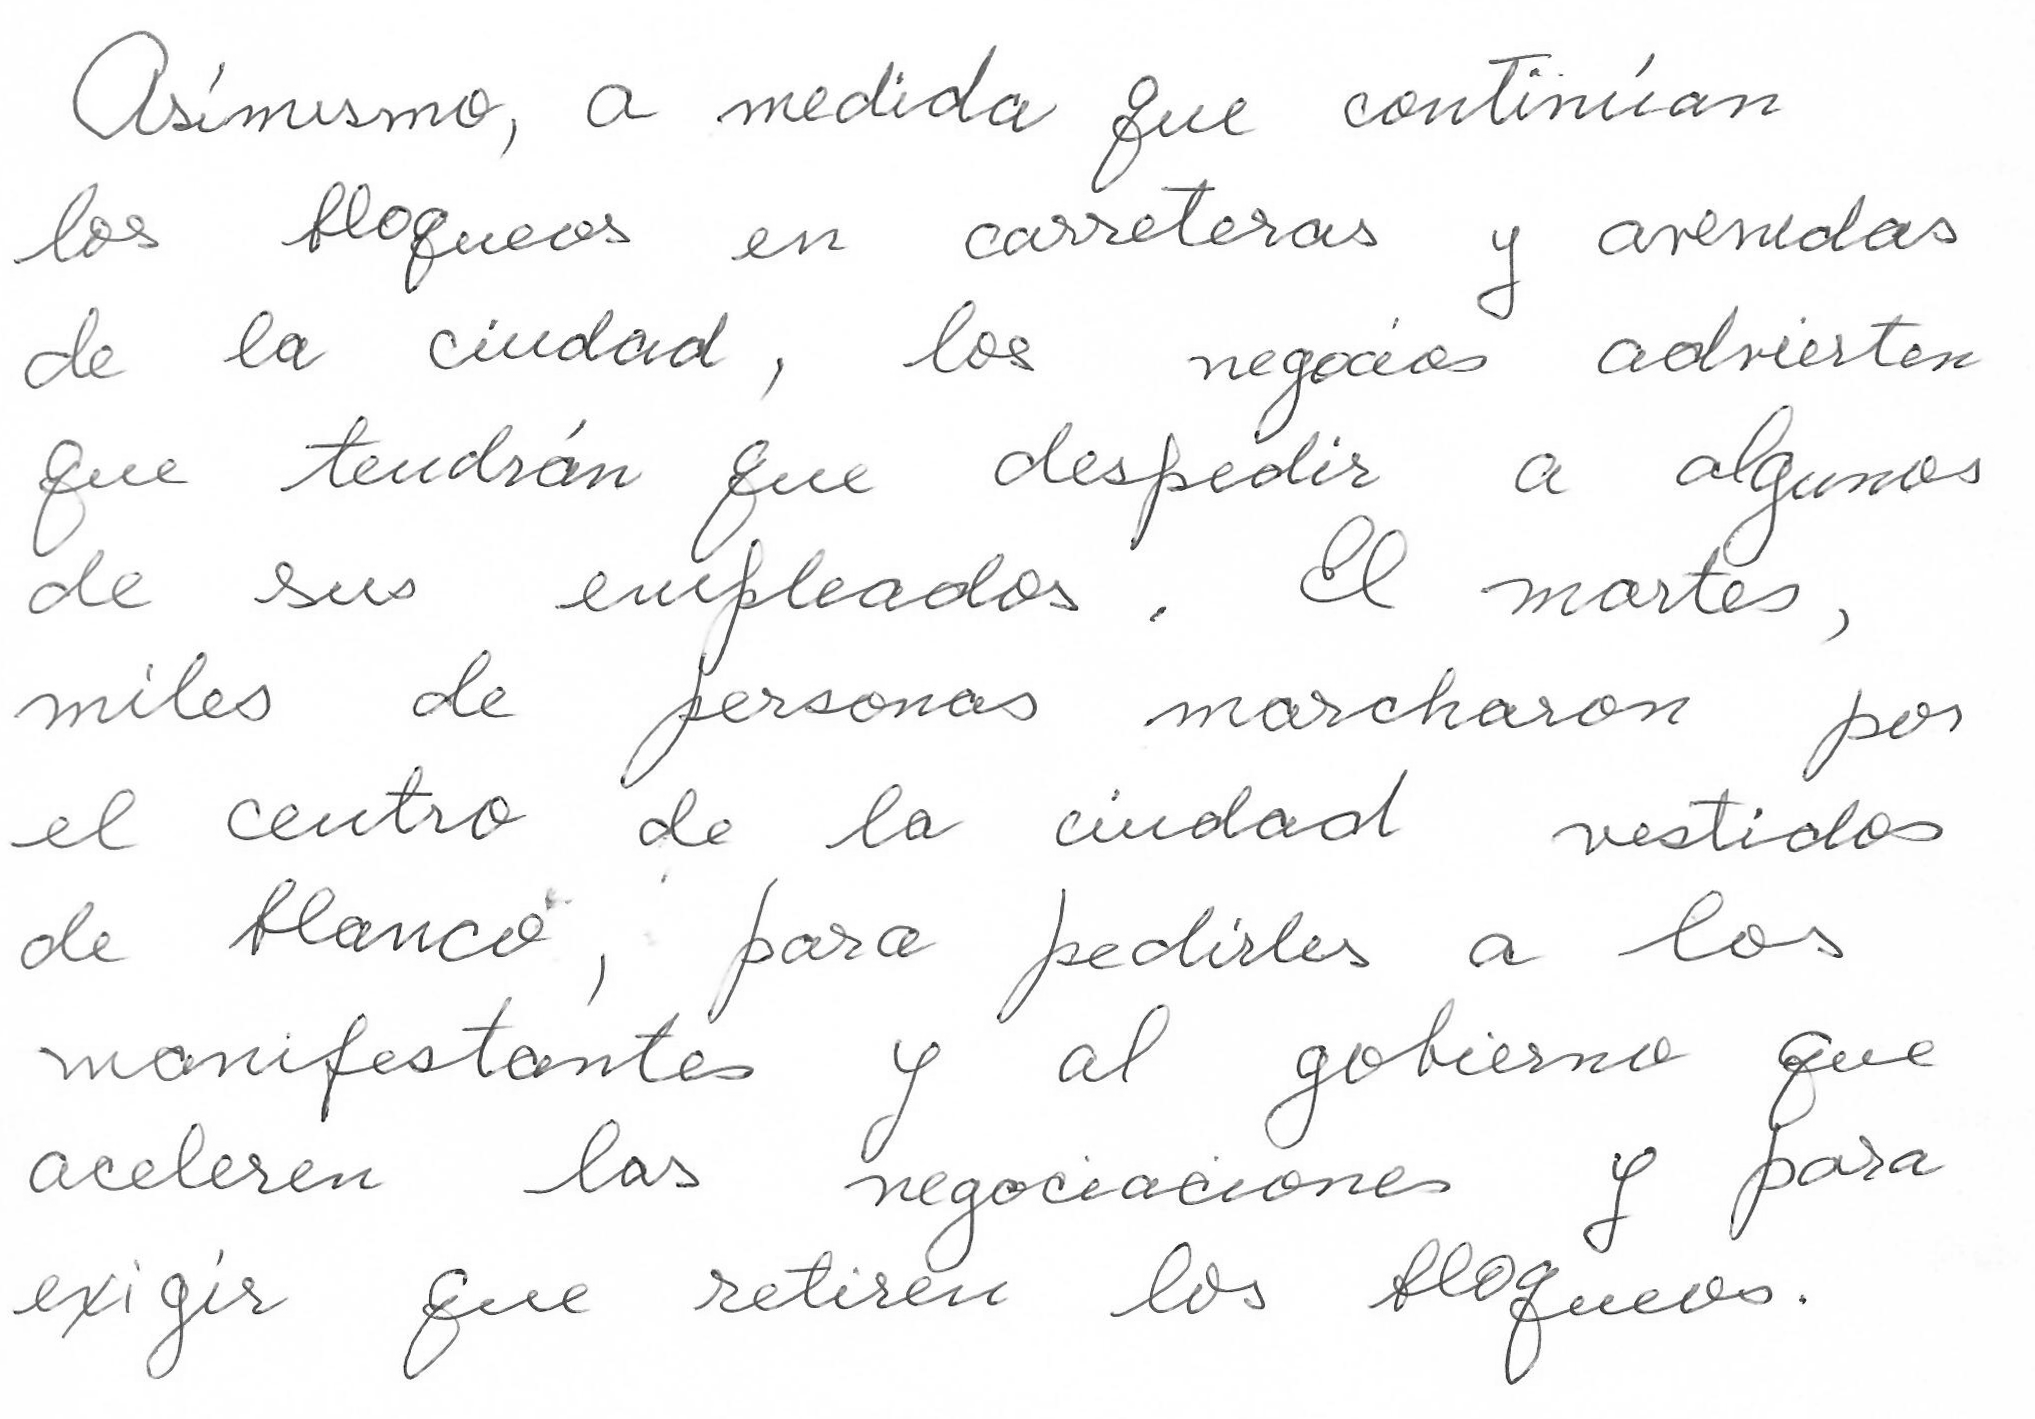 Asímismo, a medida que continúan
los bloqueos en carreteras y avenidas
de la ciudad, los negocios advierten
que tendrán que despedir a algunos
de sus empleados. El martes,
miles de personas marcharon por
el centro de la ciudad vestidos
de blanco, para pedirles a los
manifestantes y al gobierno que
aceleren las negociaciones y para
exigir que retiren los bloqueos.